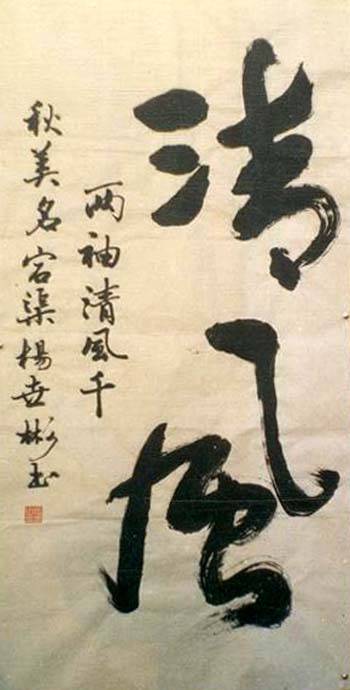 清風
兩袖清風千
秋美名宕渠楊世彬书